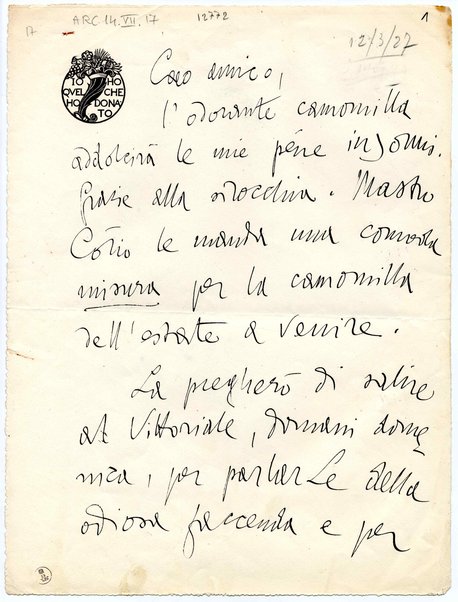 ARC.14.VII.17
12772
1
17
12/3/27
IO HO
QVEL CHE
HO DONA
TO
Caro amico,
l'odorante camomilla
addolcirà le mie péne insonni.
Grazie alla sirocchia. Mastro
Cotio le manda una comoda
misura per la camomilla
dell'estate a venire.
La pregherò di salire
al Vittoriale, domani dome-
nica, per parlarLe della
odiosa faccenda e per